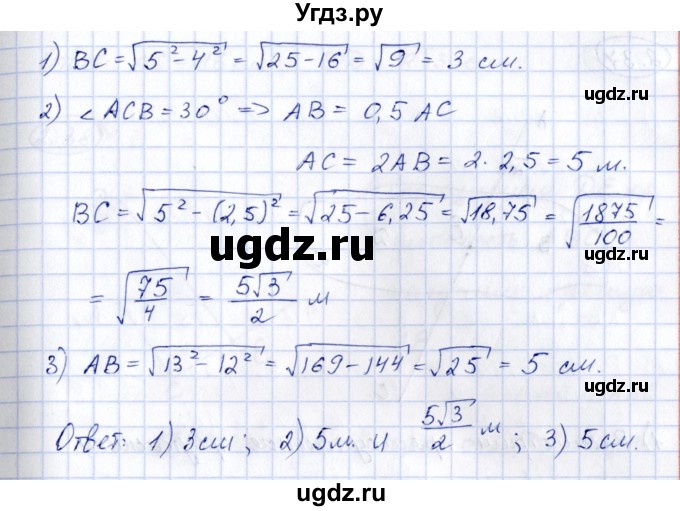 Угдз.ру
1) BC = √(5² − 4²) = √(25 − 16) = √9 = 3 см.
ugdz.ru
2) ∠ACB = 30° => AB = 0,5 AC
ugdz.ru
AC = 2AB = 2 · 2,5 = 5 м.
BC = √(5² − (2,5)²) = √(25 − 6,25) = √18,75 = √(1875/100) =
ugdz.ru
ugdz.ru
= √(75/4) = 5√3/2 м
ugdz.ru
3) AB = √(13² − 12²) = √(169 − 144) = √25 = 5 см.
ugdz.ru
Ответ: 1) 3 см; 2) 5 м. и 5√3/2 м; 3) 5 см.
ugdz.ru
ugdz.ru